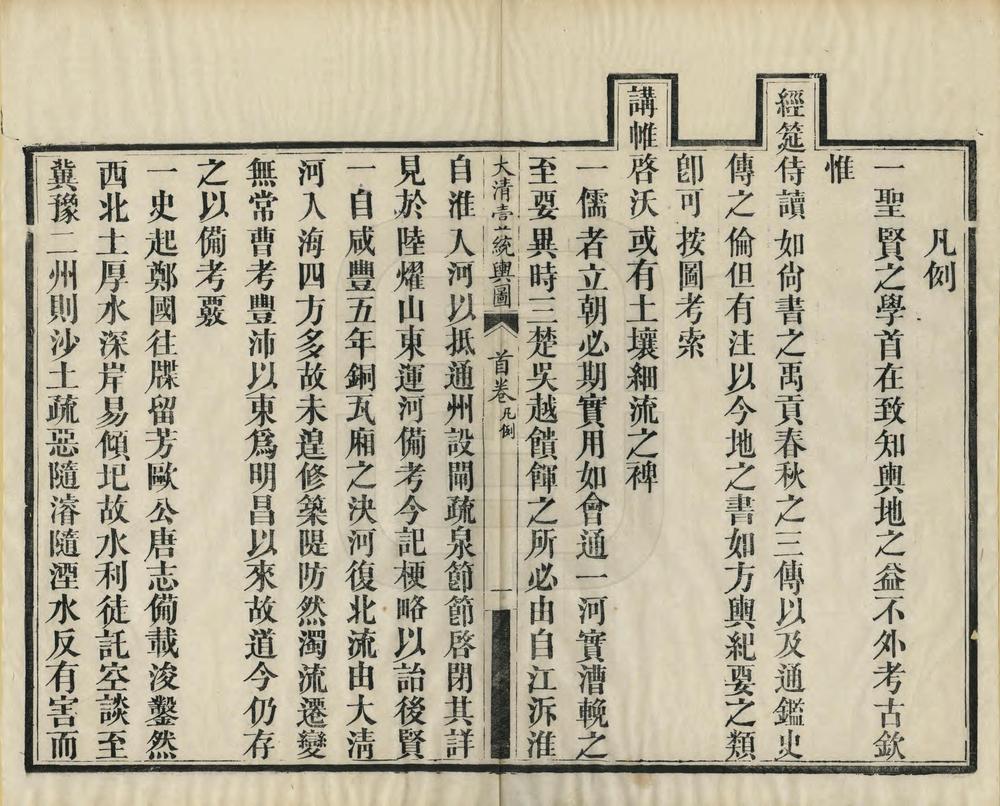 凡例
一聖賢之學首在致知輿地之益不外考古欽
惟
經筵侍讀如尚書之禹貢春秋之三傳以及通鑑史
傳之倫但有注以今地之書如方輿紀要之類
卽可按圖考索
講帷啓沃或有土壤細流之裨
一儒者立朝必期實用如會通一河實漕輓之
至要異時三楚吳越饋餫之所必由自江泝淮
大清壹統輿圖 首卷凡例 一
自淮入河以抵通州設閘疏泉節節啓閉其詳
見於陸燿山東運河備考今記梗略以詒後賢
一自咸豐五年銅瓦廂之決河復北流由大淸
河入海四方多故未遑修築隄防然濁流遷變
無常曹考豐沛以東爲明昌以來故道今仍存
之以備考覈
一史起鄭國往牒留芳歐公唐志備載浚鑿然
西北土厚水深岸易傾圮故水利徒託空談至
冀豫二州則沙土疏惡隨濬隨湮水反有害而